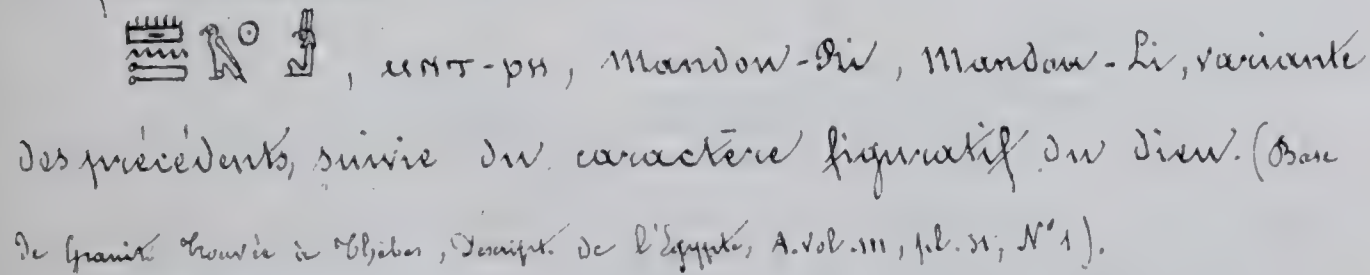 𓏠𓈖𓍿𓅱𓇳𓁩, ⲙⲛⲧ-ⲣⲏ, Mandou-Ri, Mandou-Li, variante
des précédents, suivie du caractère figuratif du dieu. (Base
de Granit trouvée à Thèbes, Descript. de l'Égypte, A. vol. III, pl. 31, N° 1).